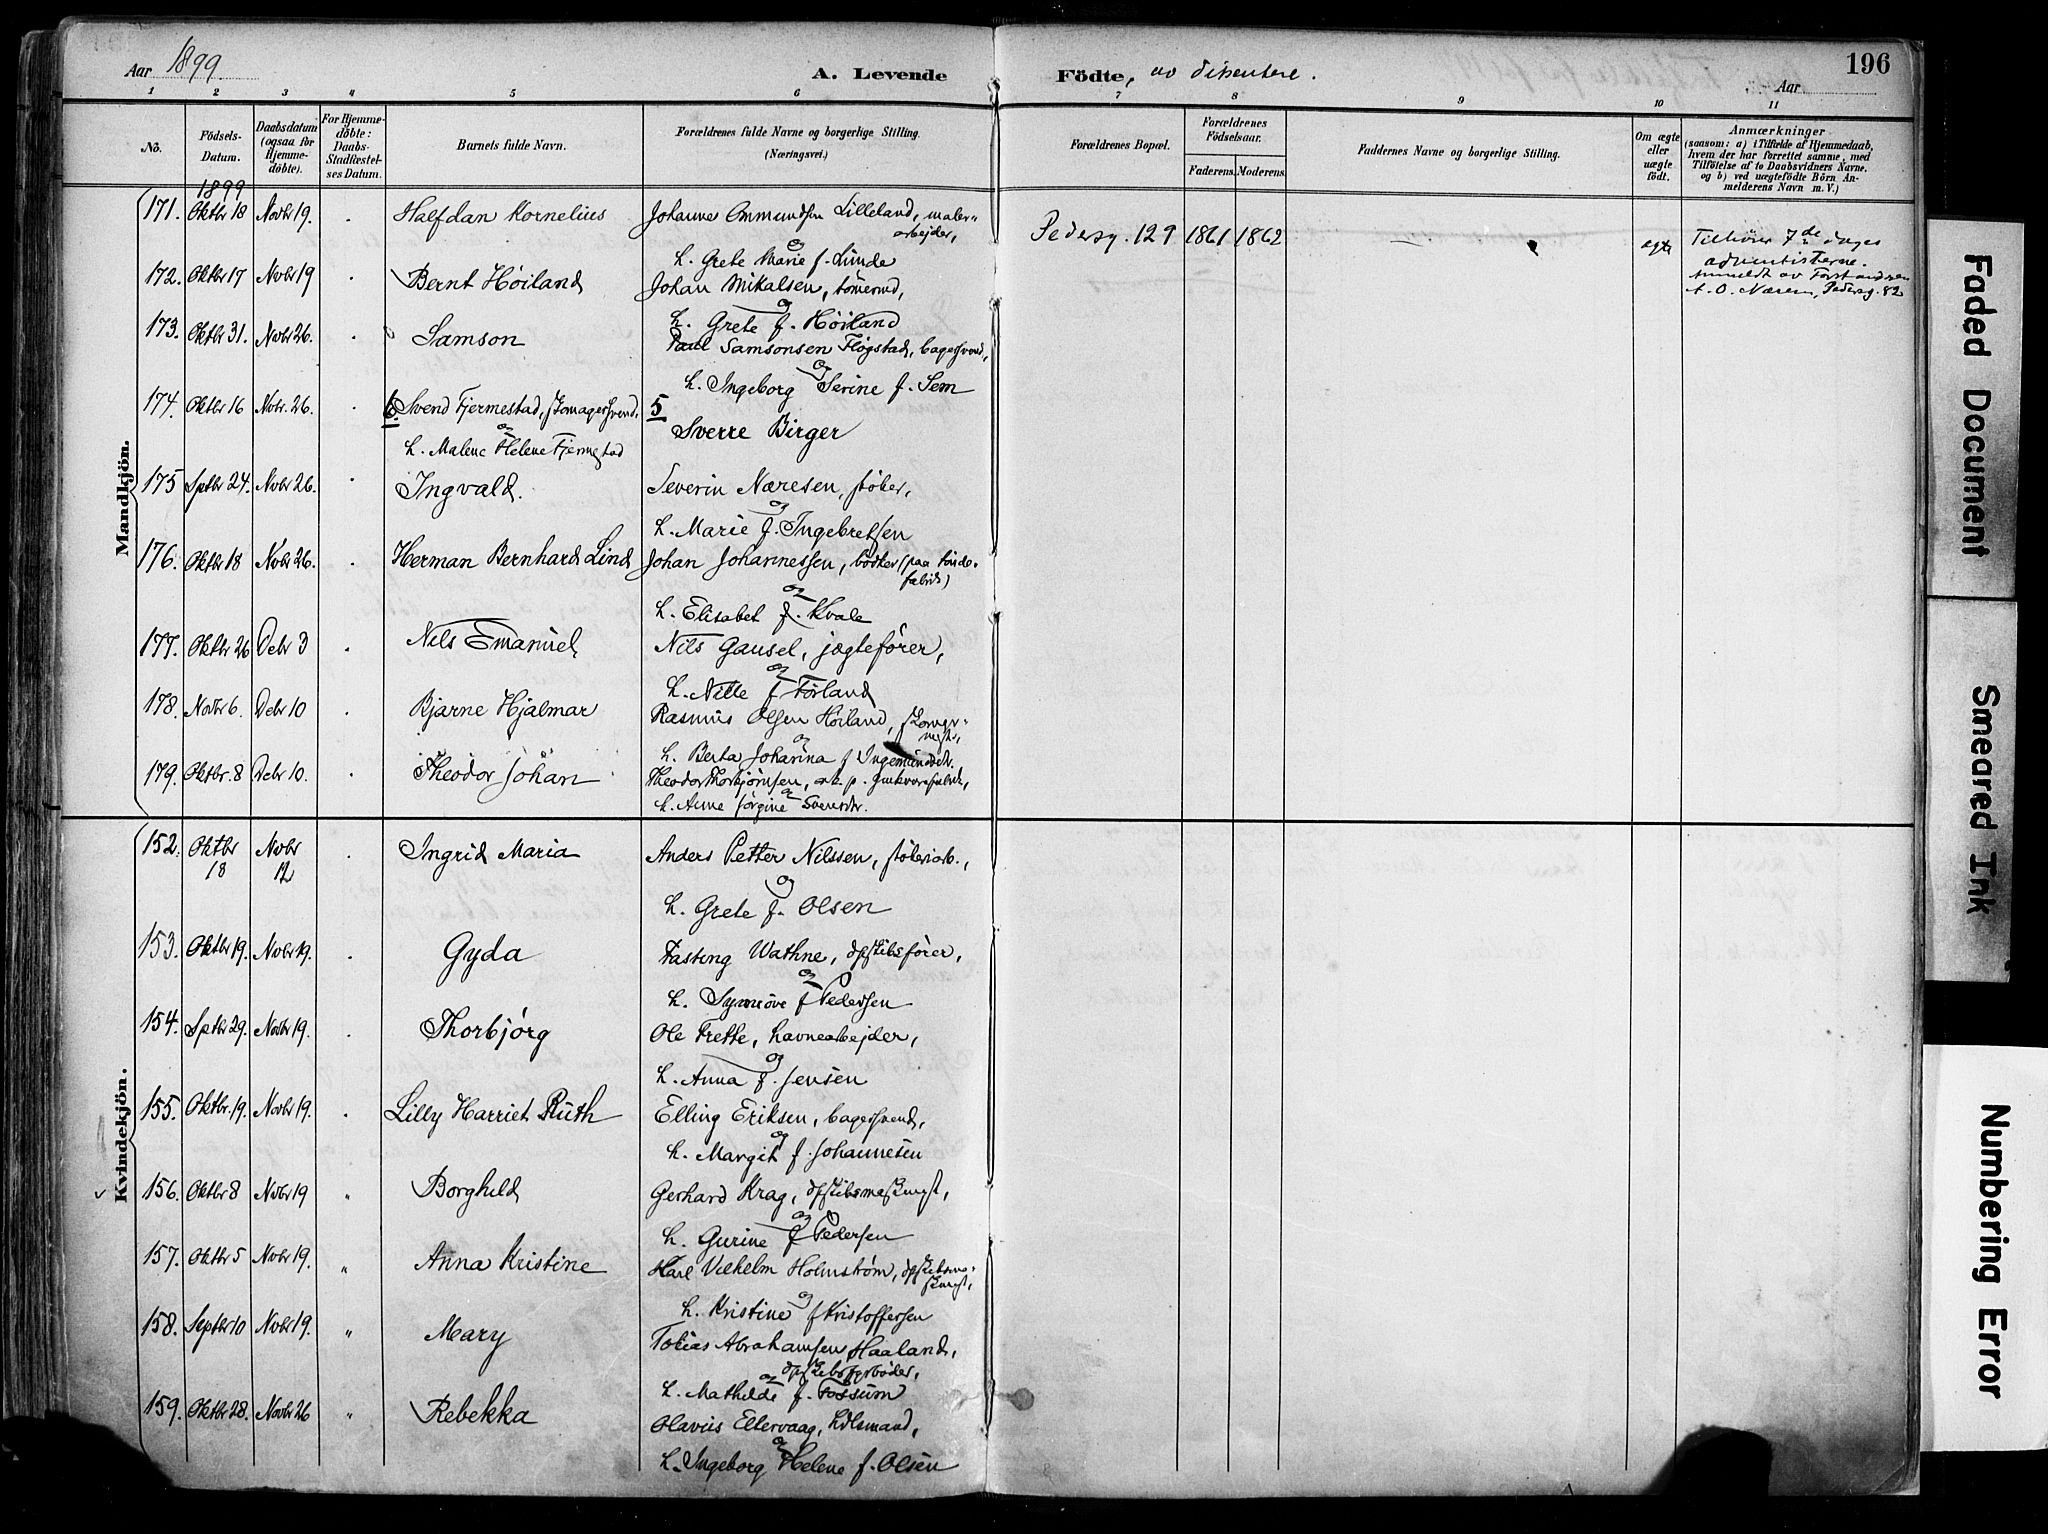 Aar 1899.
A. Levende
Födte, av dissentere.
196
Aar
1 2 3 4 5 6 7 8 9 10 11
No.
Födsels-Datum.
Daabsdatum (ogsaa for Hjemme-döbte).
For Hjemme-döbte: Daabs-Stadfæstel-ses Datum.
Barnets fulde Navn.
Forældrenes fulde Navne og borgerlige Stilling.
(Næringsvei.)
Forældrenes Bopæl.
Forældrenes Födselsaar.
Faderens. Moderens.
Faddernes Navne og borgerlige Stilling.
Om ægte eller uægte födt.
Anmærkninger
(saasom: a) i Tilfælde af Hjemmedaab,
hvem der har forrettet samme, med
Tilföielse af to Daabsvidners Navne,
og b) ved uægtefödte Börn An-
melderens Navn m. V.)
Mandkjön.
1899
171. Oktbr 18 Novbr 19. Halfdan Kornelius Johannes Ommundsen Lilleland, maler-
arbejder,
og
h. Grete Marie f. Lunde
Pedersg. 129 1861 1862 ægte
Tilhører 7de dages
adventisterne.
Anmeldt av Forstanderen
A. O. Næsen, Pedersg. 82
172. Oktbr 17 Novbr 19 Bernt Høiland Johan Mikalsen, tømmermd,
og
h. Grete f. Høiland
173. Oktbr 31. Novbr 26. Samson Paul Samsonsen Fløgstad, bagersvend,
og
h. Ingeborg Serine f. Sem
174. Oktbr 16 Novbr. 26. 6. Svend Fjermestad, skomagersvend, 5
og
h. Malene Helene Fjermestad Sverre Birger
175 Sptbr 24. Novbr 26. Ingvald. Severin Næresen, støber,
og
h. Marie f. Ingebretsen
176. Oktbr 18 Novbr 26. Herman Bernhard Lind Johan Johannessen, bødker (paa tønde-
fabrik)
og
h. Elisabet f. Kvale
177. Oktbr 26 Debr 3 Nils Emanuel Nils Gausel, jægtefører,
og
h. Nille f Førland
178. Novbr 6. Debr 10 Bjarne Hjalmar Rasmus Olsen Høiland, skomgr-
mgst.,
og
h. Berta Johanna f Ingemundsdtr.
179. Oktbr. 8 Debr 10. Theodor Johan Theodor Thorbjørnsen, arb. p. gjækvarefabrik,
og
h. Anne Jørgine Svensdtr.
Kvindekjön.
152. Oktbr 18 Novbr 12 Ingrid Maria Anders Petter Nilssen, støberiarb.,
og
h. Grete f. Olsen
153. Oktbr 19. Novbr 19. Gyda Fasting Wathne, dpskibsfører,
og
h. Synnøve f Pedersen
154. Sptbr 29. Novbr 19. Thorbjørg Ole Frette, havnearbejder,
og
h. Anna f. Jensen
155. Oktbr. 19. Novbr 19. Lilly Harriet Ruth Elling Eriksen, bagersvend,
og
h. Margit f. Johannesen
156. Oktbr 8 Novbr 19 " Borghild Gerhard Krag, dpskibsmaskingst,
og
h. Gurine f Pedersen
157. Oktbr 5 Novbr 19. " Anna Kristine Karl Vilhelm Holmstrøm, dpskibsma-
skingst,
og
h. Kristine f Kristoffersen
158. Septbr 10 Novbr 19. " Mary Tobias Abrahamsen Haaland,
dpskibsfyrbøder,
og
h. Mathilde f. Fossum
159. Oktbr 28. Novbr 26 " Rebekka Olavus Eltervaag, hdlsmand,
og
h. Ingeborg Helene f. Olsen
Faded Document
Smeared Ink
Numbering Error